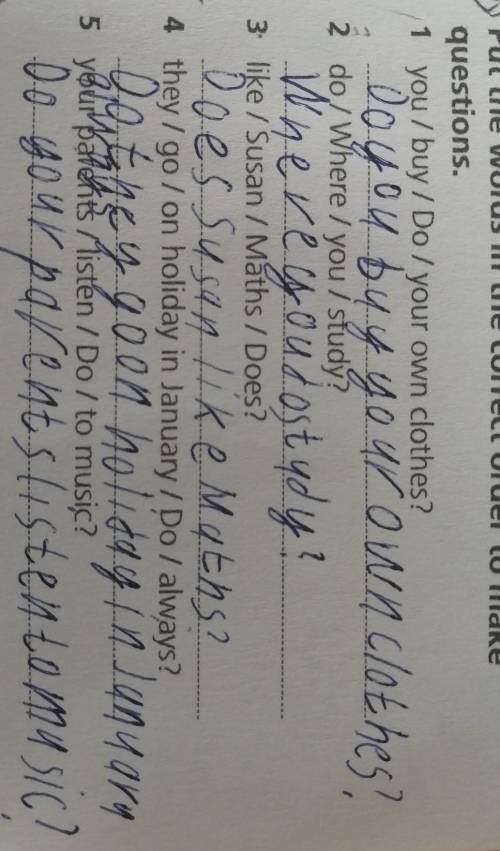 Put the words in the correct order to make
questions.
1 you / buy / Do / your own clothes?
Do you buy your own clothes?
2 do / Where / you / study?
Where you do study?
3 like / Susan / Maths / Does?
Does Susan like Maths?
4 they / go / on holiday in January / Do / always?
Do they go on holiday in January
5 your parents / listen / Do / to music?
Do your parents listen to music?